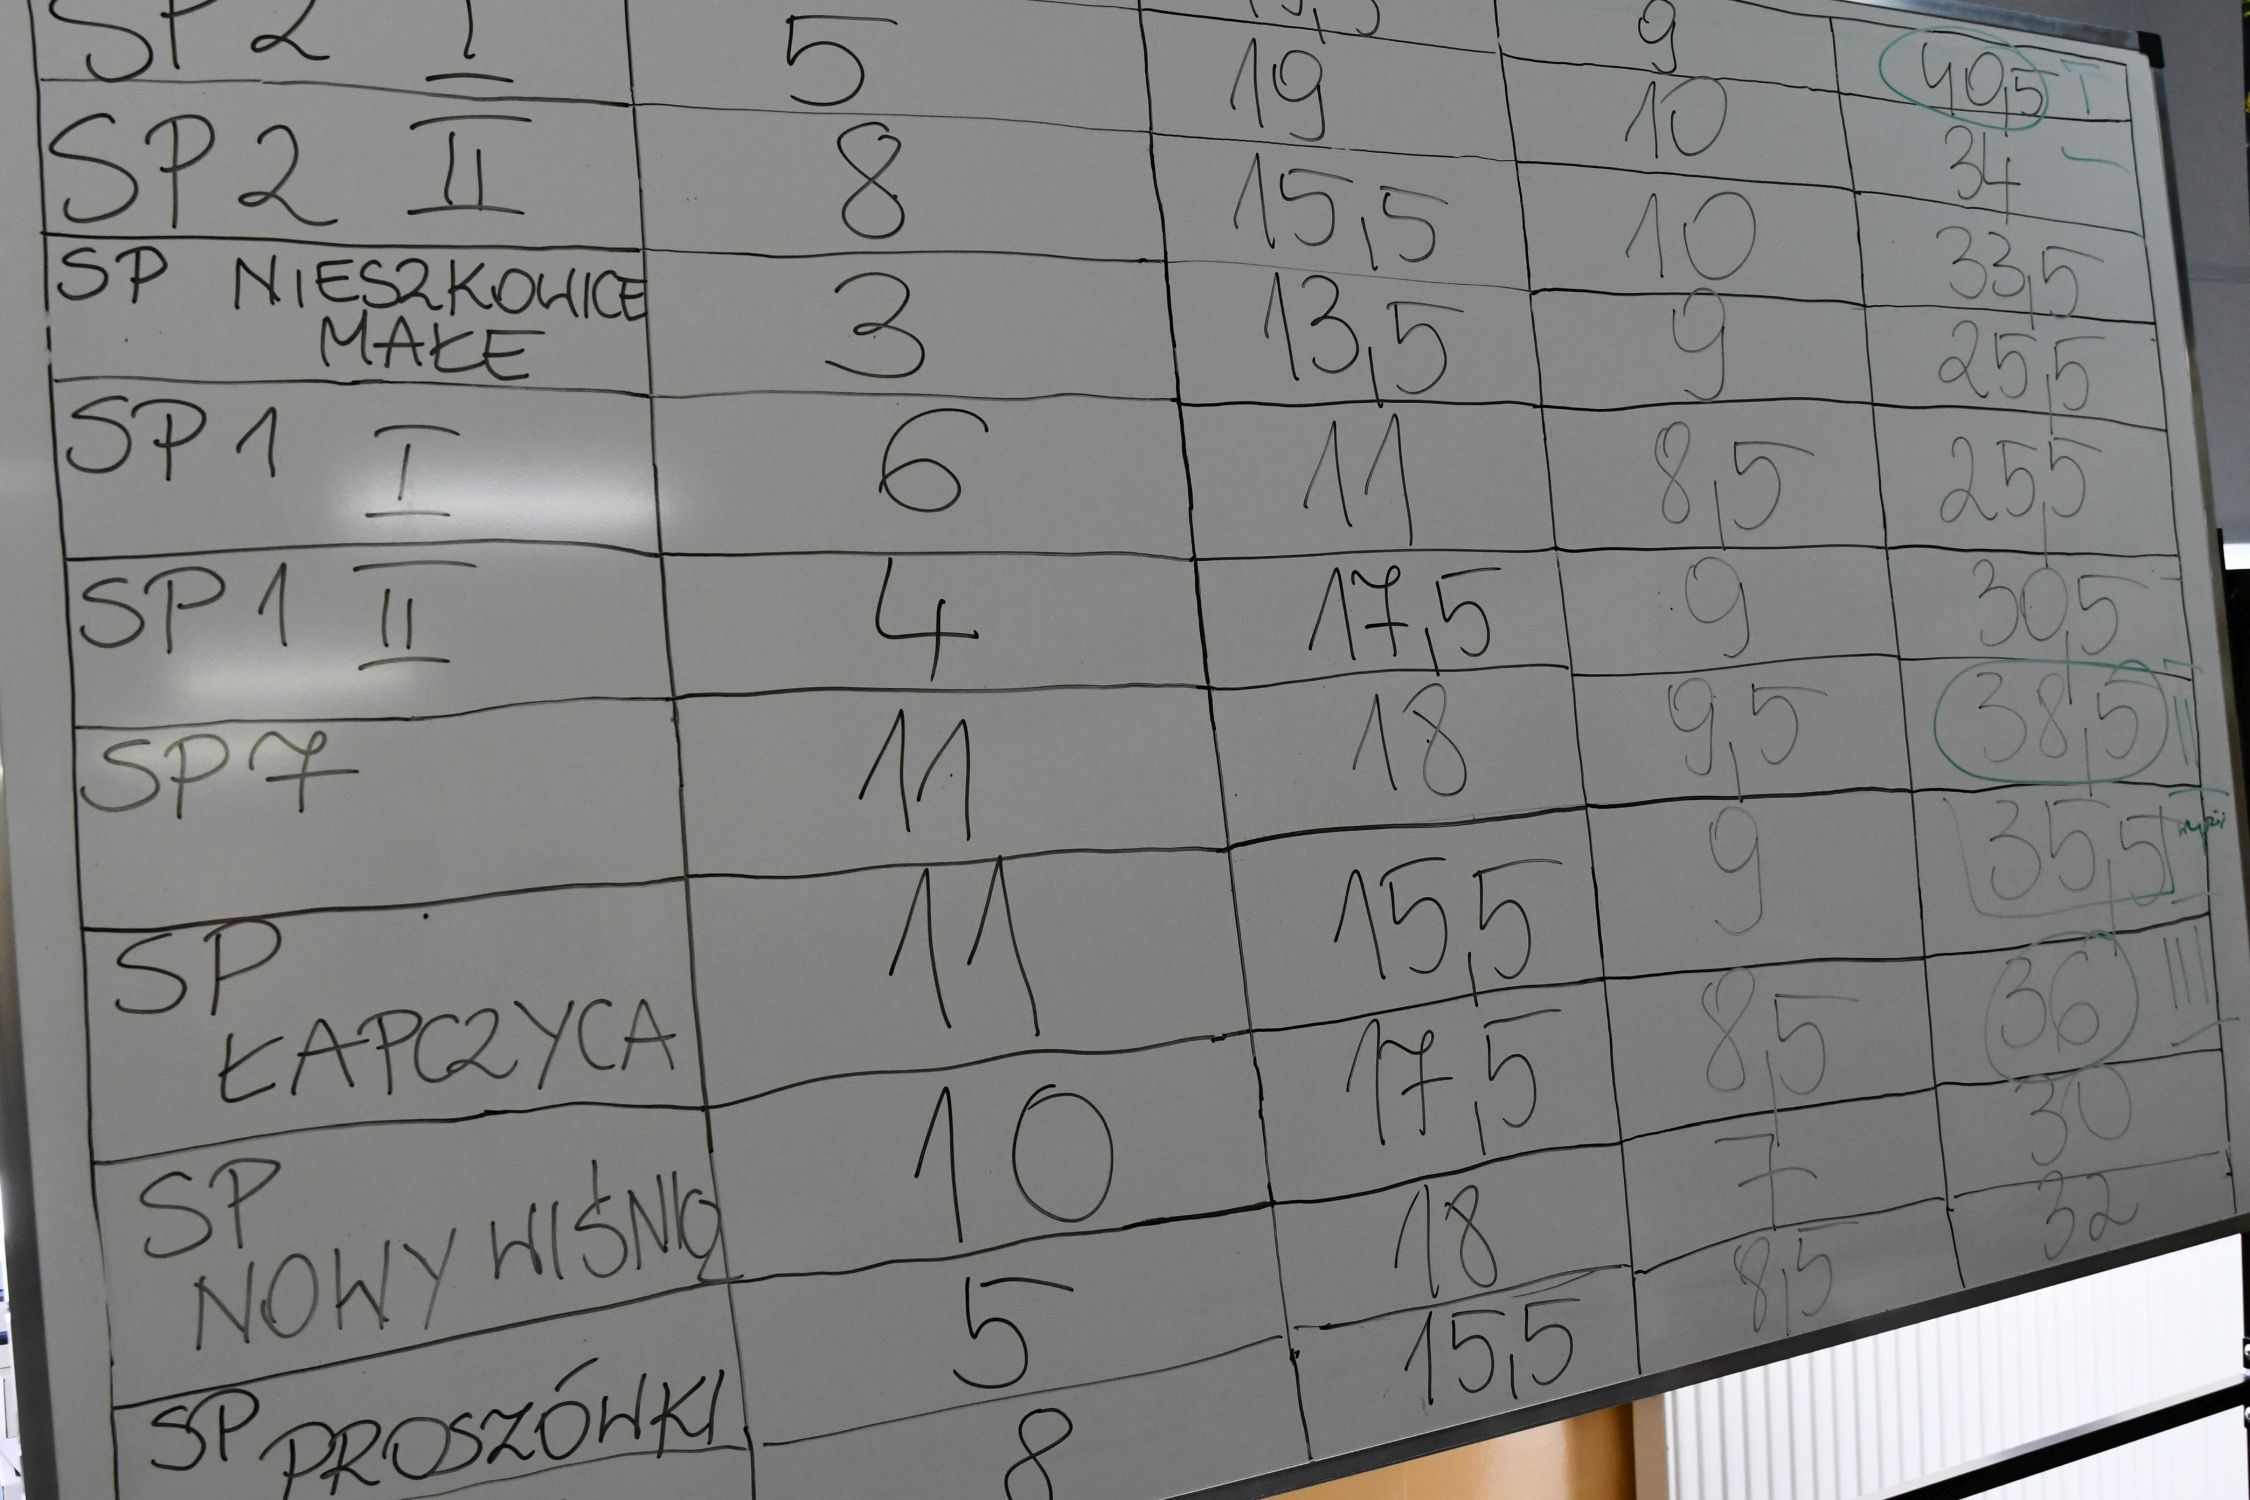 9 40,5 I
SP 2 I 5 19 10 34
SP 2 II 8 15,5 10 33,5
SP NIESZKOWICE 3 13,5 9 25,5
MAŁE
SP 1 I 6 11 8,5 25,5
SP 1 II 4 17,5 9 30,5
SP 7 11 18 9,5 38,5 II
SP 11 15,5 9 35,5
ŁAPCZYCA
SP 10 17,5 8,5 36 III
NOWY WIŚNICZ
SP PROSZÓWKI 5 18 7 30
8 15,5 8,5 32